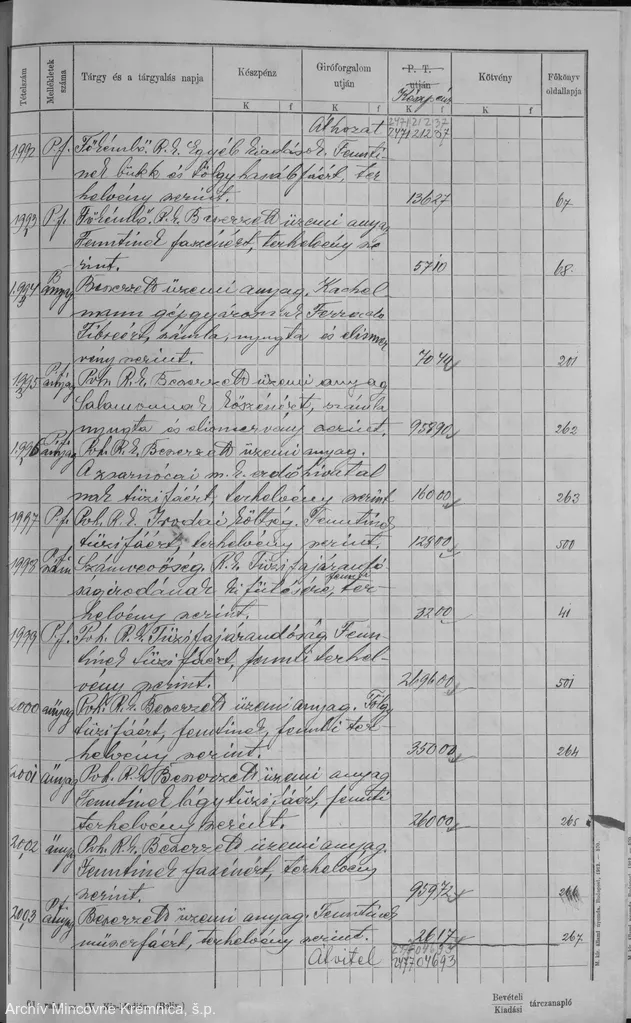 Tételszám
Mellékletek száma
Tárgy és a tárgyalás napja
Készpénz
Giróforgalom útján
P. T. útján
Készpénz
Kötvény
Főkönyv oldallapja
K f K f K f K f
Áthozat
24712123
1992 P.f. Főkémlő. R. k. Egyéb kiadások. Fennti-
nek bükk és tölgy hasábfáért, ter-
helvény szerint. 13627 67
1993 P.f. Főkémlő. R. k. Beszerzett üzemi anyag
Fenntinek faszénért, terhelvény sze-
rint. 5710 68
1994 B anyag Beszerzett üzemi anyag. Kachel-
mann gépgyárosnak Ferrodo
Fibreért, számla, nyugta és elismer
vény szerint. 7040 201
1995 P.f. anyag Poh. R. k. Beszerzett üzemi anyag
Salamonnak kőszénért, számla
nyugta és elismervény szerint. 95890 262
1996 P.f. anyag Poh. R. k. Beszerzett üzemi anyag.
A zsarnócai m. k. erdőhivatal
nak tüzifáért, terhelvény szerint 16000 263
1997 P.f. Poh. R. k. Irodai költség. Fenntinek
tüzifáért, terhelvény szerint. 12800 500
1998 P.f. szám Számvevőség. R. k. Tüzifajárandó
ságirodának kifűtésére, fennti ter-
helvény szerint. 3200 41
1999 P.f. Poh. R. k. Tüzifajárandóság. Fenn-
tinek tüzifáért, fennti terhel-
vény szerint. 219600 501
2000 anyag Poh. R. k. Beszerzett üzemi anyag. Tölgy
tüzifáért, fenntinek, fennti ter-
helvény szerint. 35000 264
2001 anyag Poh. R. k. Beszerzett üzemi anyag
Fenntinek lágy tüzifáért, fennti
terhelvény szerint. 26000 265
2002 anyag Poh. R. k. Beszerzett üzemi anyag.
Fenntinek faszénért, terhelvény
szerint. 95972
2003 P.f. anyag Beszerzett üzemi anyag. Fenntinek
műszerfáért, terhelvény szerint. 2617 267
Átvitel
24704693
M. kir. állami nyomda, Budapest, 1912. —
Bevételi
Kiadási tárczanapló
Archív Mincovne Kremnica, š.p.